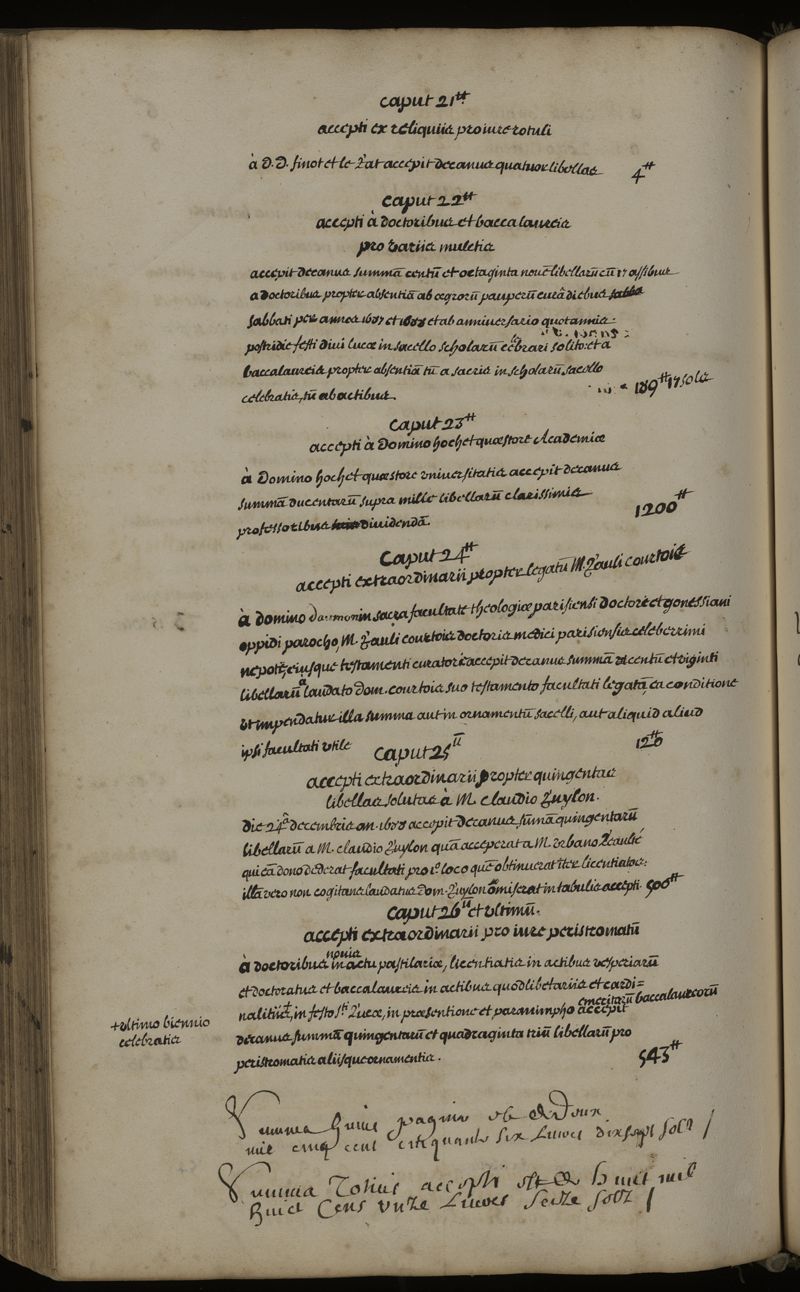 caput 21um
accepti ex reliquiis pro iure rotuli
à D.D. finot et le Rat accepit decanus quatuor libellas 4tt
caput 22um
accepti à doctoribus et baccalaureis
pro variis mulctis
accepit decanus summā centū et octaginta nouē libellarū cū 17 assibus
a doctoribus propter absentiā ab aegrorū pauperū curâ diebus sabba
sabbati per annos 1687 et 1688 et ab anniuersario quotannis
postridie festi diui lucae in sacello scholarū celebrari solito: et a
baccalaureis propter absentiā tū a sacris in scholarū sacello
celebratis, tū ab actibus. 189tt 17 sols
caput 23um
accepti à Domino hochet quaestore Academiae
à Domino hochet quaestore vniuersitatis accepit decanus
summā ducentarū supra mille libellarū clarissimis
professoribus diuidendā. 1200tt
caput 24um
accepti extraordinarii propter legatū M. Pauli courtois
à domino Darmonin sacra facultate theologiae parisiensi doctore et gonessiani
oppidi parocho, M. Pauli courtois doctoris medici parisiensis celeberrimi
nepote eiusque testamenti curatore accepit decanus summā centū et viginti
libellarū a laudato dom. courtois suo testamento facultati legatā ea conditione
vt impendatur illa summa aut in ornamentū sacelli, aut aliquid aliud
ipsi facultati vtile 120tt
caput 25um
accepti extraordinarii propter quingentas
libellas solutas à M. claudio Quylon.
die 24a decembris an. 1688 accepit decanus summā quingentarū
libellarū a M. claudio Quylon quā acceperat a M. vrbano Leaulté
qui eā dono dederat facultati pro 1o loco quē obtinuerat iter licentiatos:
illā vero non cogitans laudatus dom. Quylon omiserat in tabulis accepti. 500tt
caput 26um et vltimū.
accepti extraordinarii pro iure peristromatū
à doctoribus nouis in actu pastillariae, licentiatis in actibus vesperiarū
et doctoratus et baccalaureis in actibus quodlibetariis et cardi=
nalitiis+, in festo sti Lucae, in praesentione et paranimpho emeritarū baccalaureorū accepit
decanus summā quingentarū et quadraginta triū libellarū pro
peristromatis aliisque ornamentis. 543tt
+ vltimo biennio
celebratis
Summa huius paginae est de Deux
mil cinq cent cinquante six Liures dixsept solz
Summa Totius accepti est de huict mil
huict Cens vnze Liures seize solz